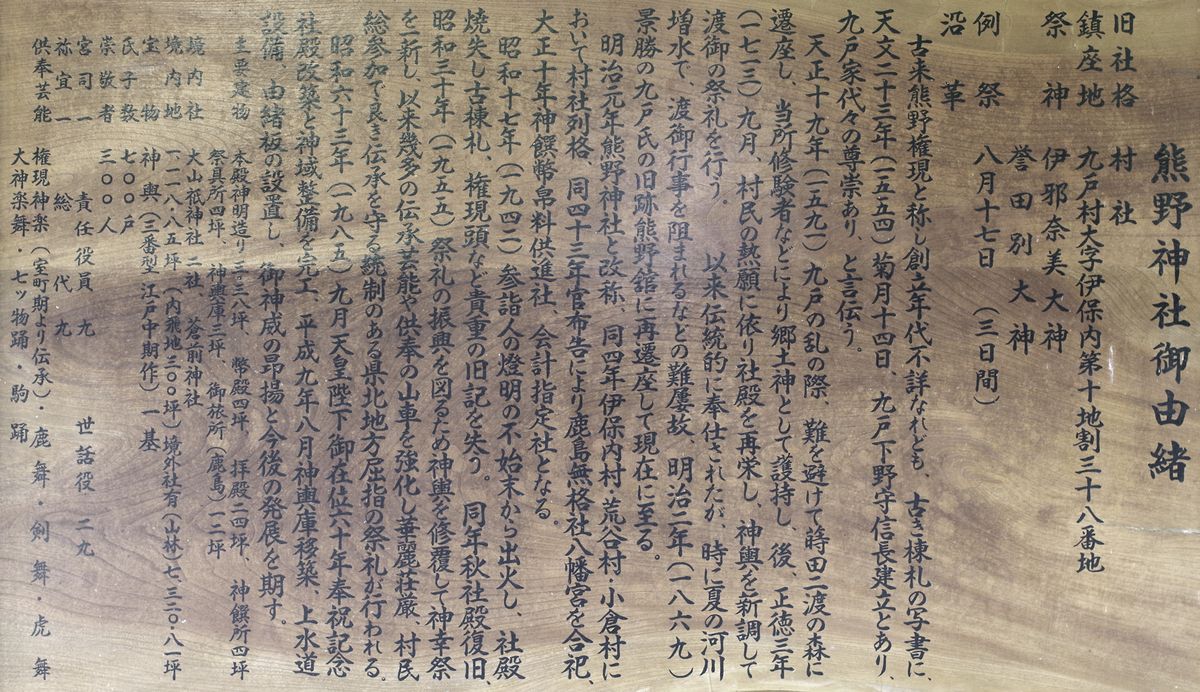 熊野神社御由緒
旧社格　村社
鎮座地　九戸村大字伊保内第十地割三十八番地
祭神　伊邪奈美大神
誉田別大神
例祭　八月十七日（三日間）
沿革
古来熊野権現と称し創立年代不詳なれども、古き棟札の写書に、
天文二十三年（一五五四）菊月十四日、九戸下野守信長建立とあり、
九戸家代々の尊崇あり、と言伝う。
天正十九年（一五九一）九戸の乱の際、難を避けて蒔田二渡の森に
遷座し、当所修験者などにより郷土神として護持し、後、正徳三年
（一七一三）九月、村民の熱願に依り社殿を再栄し、神輿を新調して
渡御の祭礼を行う。以来伝統的に奉仕されたが、時に夏の河川
増水で、渡御行事を阻まれるなどの難屡故、明治二年（一八六九）
景勝の九戸氏の旧跡熊野舘に再遷座して現在に至る。
明治元年熊野神社と改称、同四年伊保内村・荒谷村・小倉村に
おいて村社列格、同四十三年官布告により鹿島無格社八幡宮を合祀、
大正十年神饌幣帛料供進社、会計指定社となる。
昭和十七年（一九四二）参詣人の燈明の不始末から出火し、社殿
焼失し古棟札、権現頭など貴重の旧記を失う。同年秋社殿復旧、
昭和三十年（一九五五）祭礼の振興を図るため神輿を修覆して神幸祭
を一新し、以来幾多の伝承芸能や供奉の山車を強化し華麗荘厳、村民
総参加で良き伝承を守る統制のある県北地方屈指の祭礼が行われる。
昭和六十三年（一九八五）九月天皇陛下御在位六十年奉祝記念
社殿改築と神域整備を完工、平成九年八月神輿庫移築、上水道
設備、由緒板の設置し、御神威の昂揚と今後の発展を期す。
主要建物　本殿神明造り三・三八坪　幣殿四坪　拝殿二四坪、神饌所四坪
祭具所四坪、神輿庫三坪、御旅所（鹿島）一二坪
境内社　大山祇神社二社　蒼前神社
境内地　一、二一八・八五坪（内飛地三〇〇坪）境外社有（山林）七、三二〇・八一坪
宝物　神輿（三番型江戸中期作）一基
氏子数　七〇〇戸
崇敬者　三〇〇人
宮司一　責任役員九　世話役二九
祢宜一　総代九
供奉芸能　権現神楽（室町期より伝承）・鹿舞・剣舞・虎舞
大神楽舞・七ツ物踊・駒踊